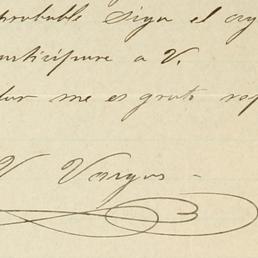 probable siga el
participare a V.
me es grato
V Vargas -